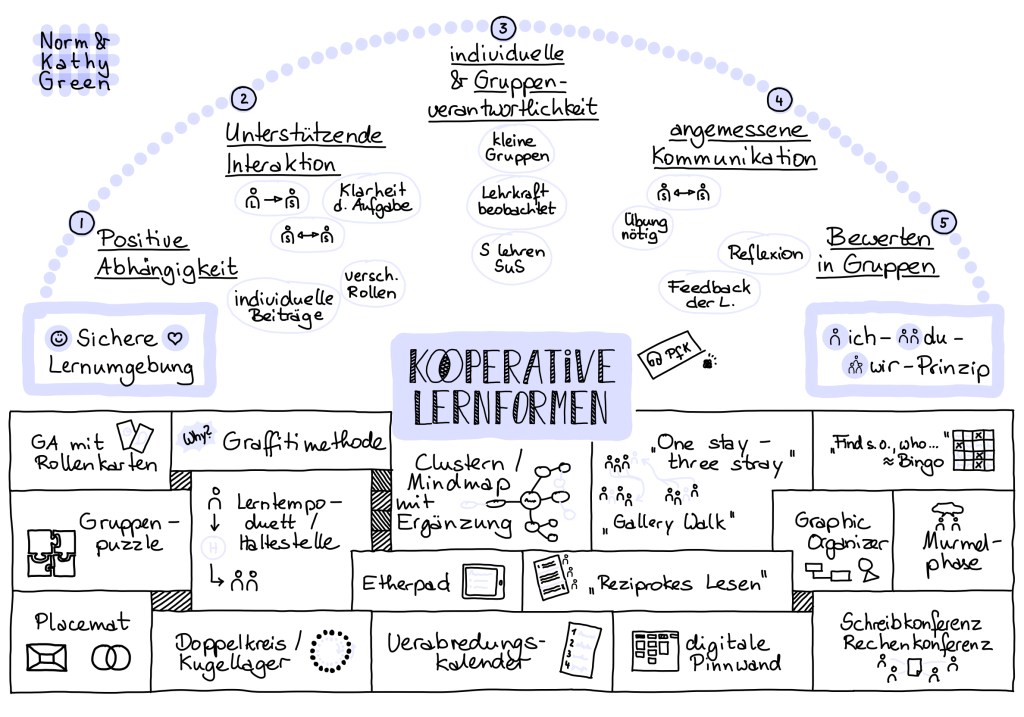 Norm &
Kathy
Green
1
Positive
Abhängigkeit
2
Unterstützende
Interaktion
S
Klarheit
d. Aufgabe
S
S
versch.
Rollen
individuelle
Beiträge
3
individuelle
& Gruppen-
verantwortlichkeit
kleine
Gruppen
Lehrkraft
beobachtet
S lehren
SuS
4
angemessene
Kommunikation
S
S
Übung
nötig
Reflexion
Feedback
der L.
5
Bewerten
in Gruppen
Sichere
Lernumgebung
KOOPERATIVE
LERNFORMEN
PfK
ich - du -
wir - Prinzip
GA mit
Rollenkarten
Why?
Graffitimethode
Clustern /
Mindmap
mit
Ergänzung
"One stay -
three stray"
"Gallery Walk"
"Find s.o., who..."
≈ Bingo
Gruppen-
puzzle
Lerntempo-
duett /
Haltestelle
H
Graphic
Organizer
Murmel-
phase
Etherpad
"Reziprokes Lesen"
Placemat
Doppelkreis /
Kugellager
Verabredungs-
kalender
1
2
3
4
digitale
Pinnwand
Schreibkonferenz
Rechenkonferenz